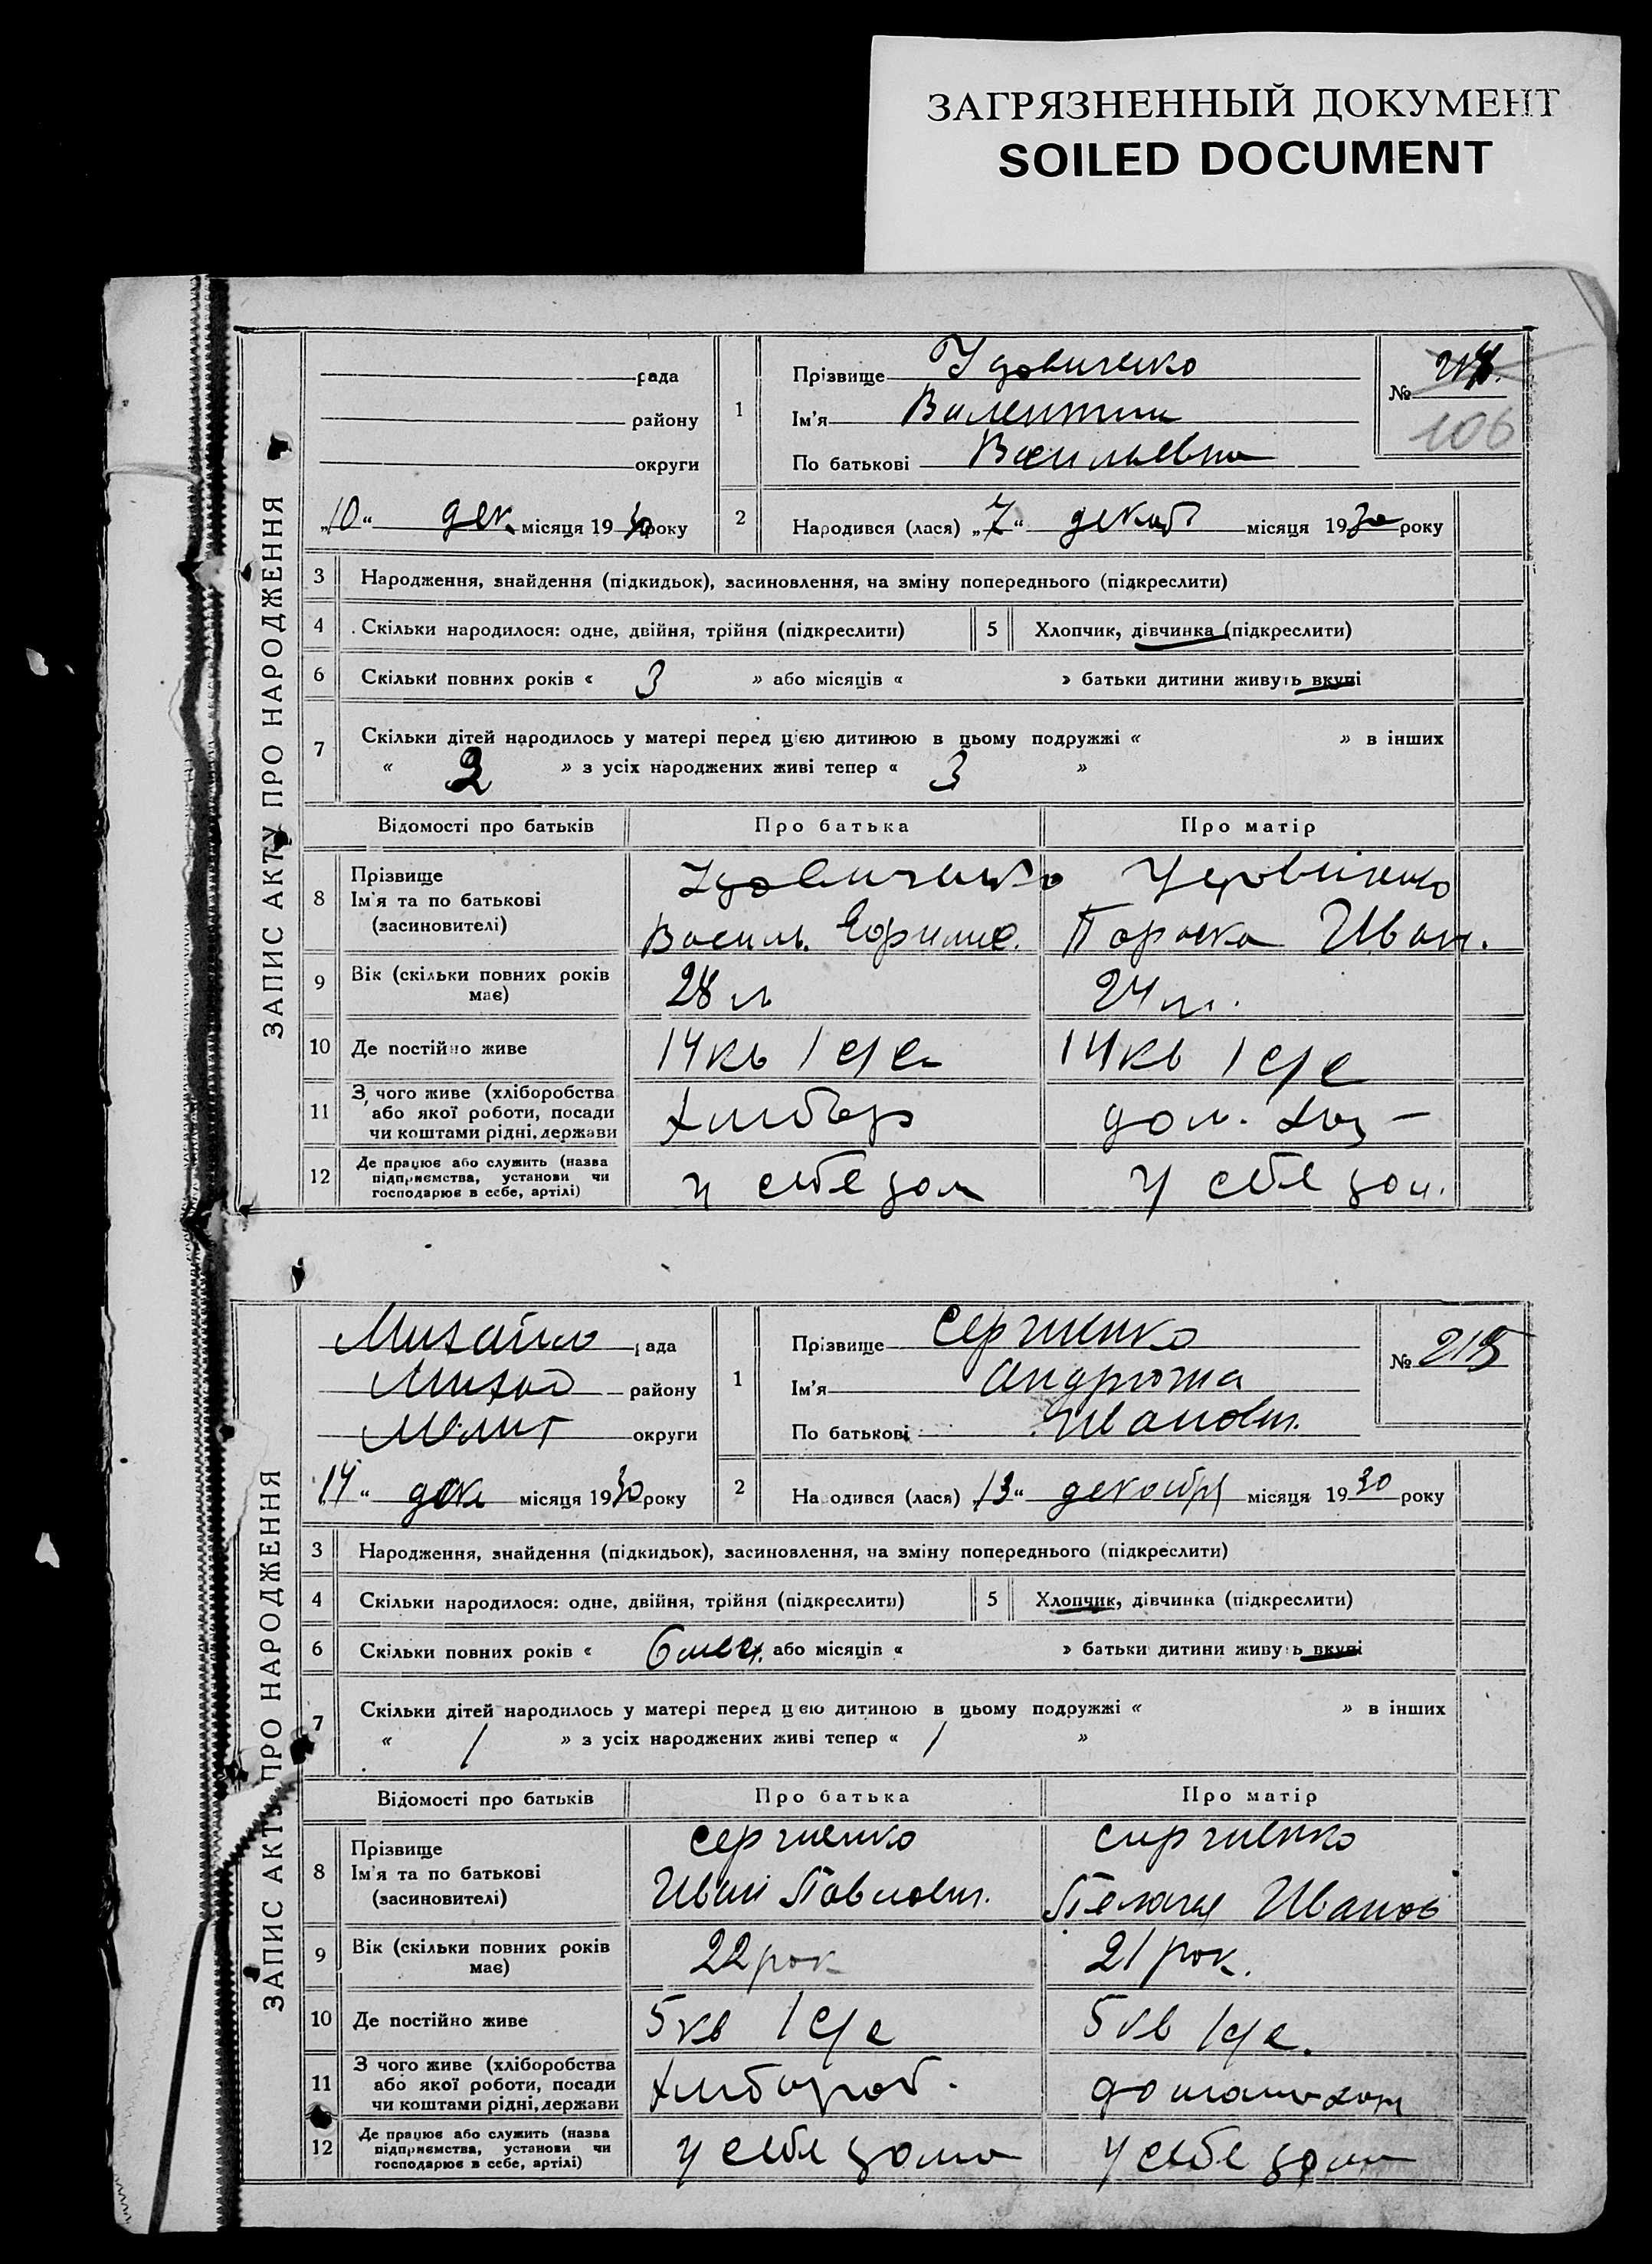 ЗАГРЯЗНЕННЫЙ ДОКУМЕНТ
SOILED DOCUMENT
ЗАПИС АКТУ ПРО НАРОДЖЕННЯ
рада
району
округи
„10“ дек. місяця 1930 року
1
Прізвище Удовиченко
Ім'я Валентина
По батькові Васильевна
№ 214.
106
2
Народився (лася) „7“ декаб місяця 1930 року
3 Народження, знайдення (підкидьок), засиновлення, на зміну попереднього (підкреслити)
4 Скільки народилося: одне, двійня, трійня (підкреслити) 5 Хлопчик, дівчинка (підкреслити)
6 Скільки повних років « 3 » або місяців « » батьки дитини живуть вкупі
7 Скільки дітей народилось у матері перед цією дитиною в цьому подружжі « » в інших
« 2 » з усіх народжених живі тепер « 3 »
Відомості про батьків Про батька Про матір
8 Прізвище Ім'я та по батькові (засновителі)
Удовиченко Удовиченко
Василь. Параска Иван.
9 Вік (скільки повних років має) 28 л 24 л.
10 Де постійно живе 14 кв 1 с/с 14 кв 1 с/с
11 З чого живе (хліборобства або якої роботи, посади чи коштами рідні, держави Хлибор дом. хоз –
12 Де працює або служить (назва підприємства, установи чи господарює в себе, артілі) у себе дом у себе дом.
ЗАПИС АКТУ ПРО НАРОДЖЕННЯ
Михайло рада
Михай району
Мелит округи
„14“ дек місяця 1930 року
1
Прізвище Сергиенко
Ім'я Андрюша
По батькові Иванович.
№ 215
2
Народився (лася) „13“ декабря місяця 1930 року
3 Народження, знайдення (підкидьок), засиновлення, на зміну попереднього (підкреслити)
4 Скільки народилося: одне, двійня, трійня (підкреслити) 5 Хлопчик, дівчинка (підкреслити)
6 Скільки повних років « 6 мес. або місяців « » батьки дитини живуть вкупі
7 Скільки дітей народилось у матері перед цією дитиною в цьому подружжі « » в інших
« 1 » з усіх народжених живі тепер « 1 »
Відомості про батьків Про батька Про матір
8 Прізвище Ім'я та по батькові (засиновителі)
Сергиенко Сиргиенко
Иван Павлович. Пелагея Иванов
9 Вік (скільки повних років має) 22 рок 21 рок.
10 Де постійно живе 5 кв 1 с/с 5 кв 1 с/с.
11 З чого живе (хліборобства або якої роботи, посади чи коштами рідні, держави Хлибороб. домашхоз
12 Де працює або служить (назва підприємства, установи чи господарює в себе, артілі) у себе дома у себе дома